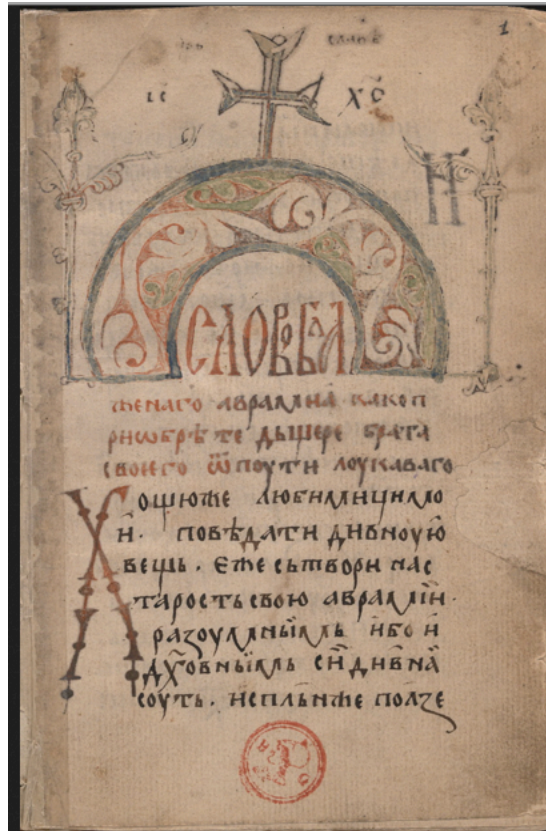 1
і҃с х҃с
СЛОВО БЛА
женаго авраамїа како п
рїѡбрѣте дьщере брата
своего ѿ поути лоукаваго
Хощюже любимици мо
и. повѣдати дивноую
вещь. Еже сьтвори нас
тарость свою авраамїи.
разоумныимь ибо и
дх҃овныимь сїи дивна
соуть. исплънже полѕе